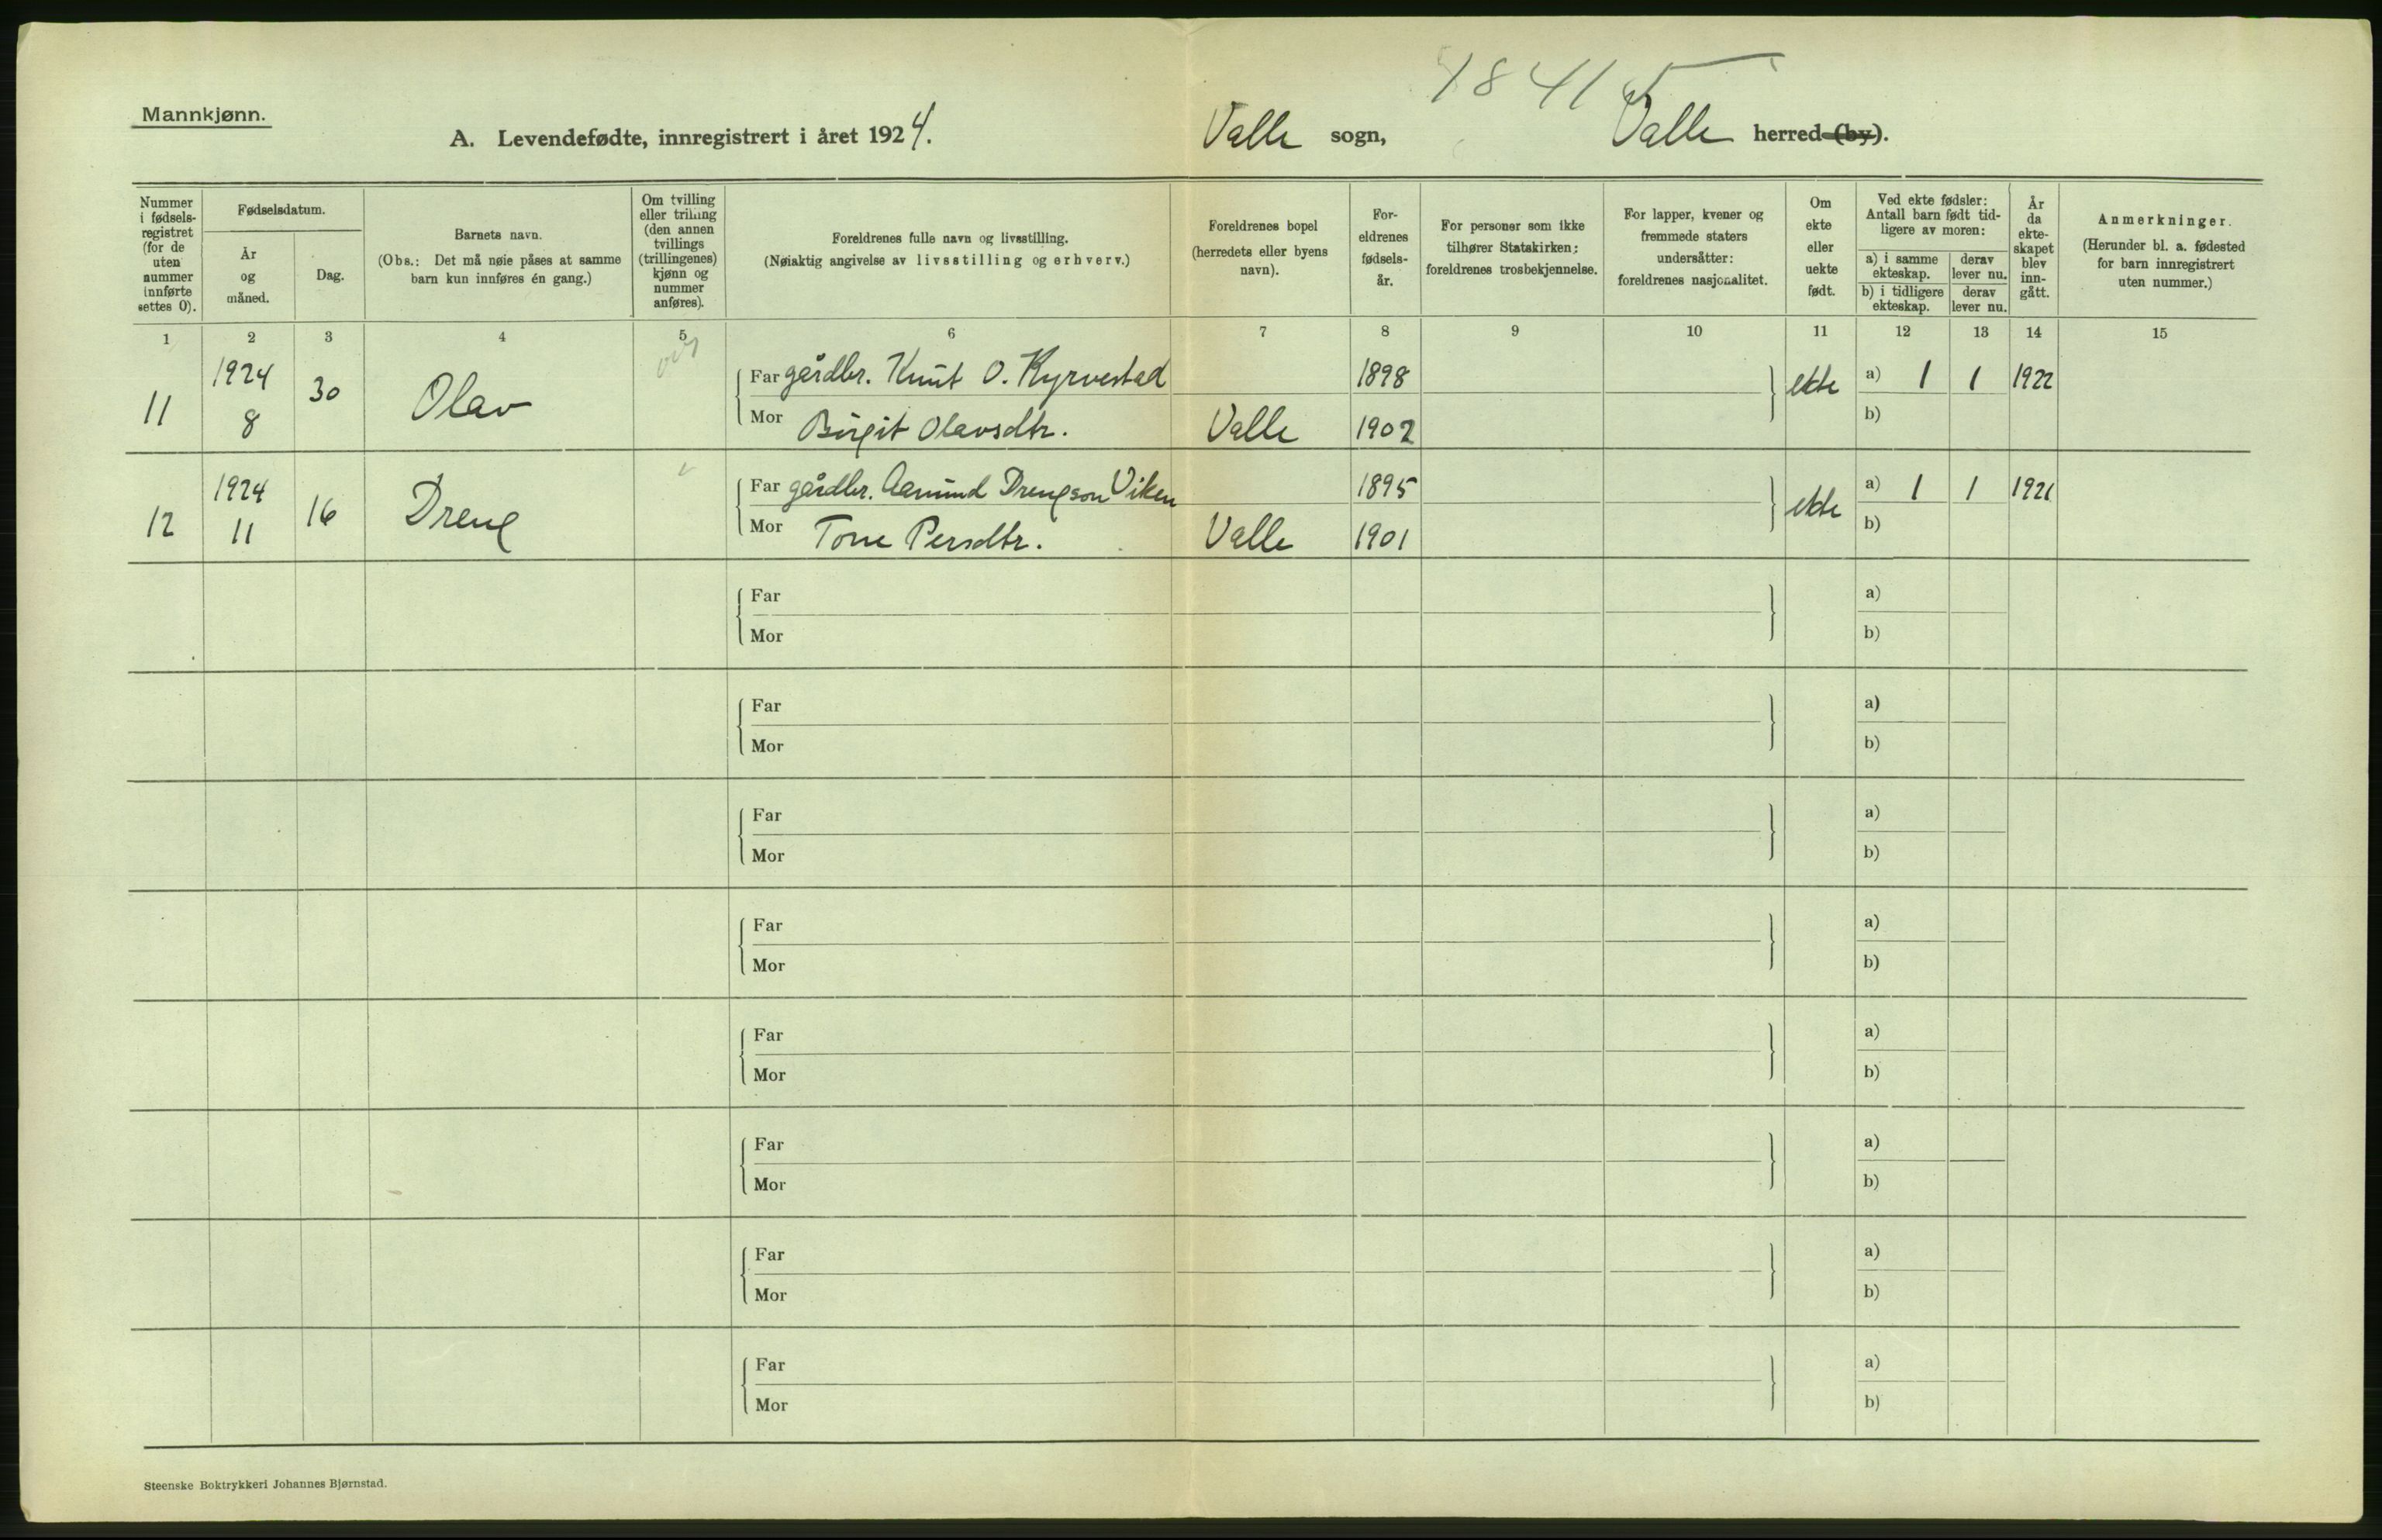 Mannkjønn.
A. Levendefødte, innregistrert i året 1924. Valle sogn, Valle herred (by).
1841
Nummer i fødselsregistret (for de uten nummer innførte settes 0).
Fødselsdatum.
År og måned.
Dag.
Barnets navn.
(Obs.: Det må nøie påses at samme barn kun innføres én gang.)
Om tvilling eller trilling (den annen tvillings (trillingenes) kjønn og nummer anføres).
Foreldrenes fulle navn og livsstilling.
(Nøiaktig angivelse av livsstilling og erhverv.)
Foreldrenes bopel (herredets eller byens navn).
Foreldrenes fødselsår.
For personer som ikke tilhører Statskirken: foreldrenes trosbekjennelse.
For lapper, kvener og fremmede staters undersåtter: foreldrenes nasjonalitet.
Om ekte eller uekte født.
Ved ekte fødsler: Antall barn født tidligere av moren:
a) i samme ekteskap. derav lever nu.
b) i tidligere ekteskap. derav lever nu.
År da ekteskapet blev inngått.
Anmerkninger.
(Herunder bl. a. fødested for barn innregistrert uten nummer.)
1 2 3 4 5 6 7 8 9 10 11 12 13 14 15
11 1924 8 30 Olav Far gårdbr. Knut O. Kyrvestad 1898 ekte a) 1 1 1922
Mor Birgit Olavsdtr. Valle 1902 b)
12 1924 11 16 Dreng Far gårdbr. Aamund Drengson Viken 1895 ekte a) 1 1 1921
Mor Tone Persdtr. Valle 1901 b)
Far a)
Mor b)
Far a)
Mor b)
Far a)
Mor b)
Far a)
Mor b)
Far a)
Mor b)
Far a)
Mor b)
Far a)
Mor b)
Far a)
Mor b)
Steenske Boktrykkeri Johannes Bjørnstad.